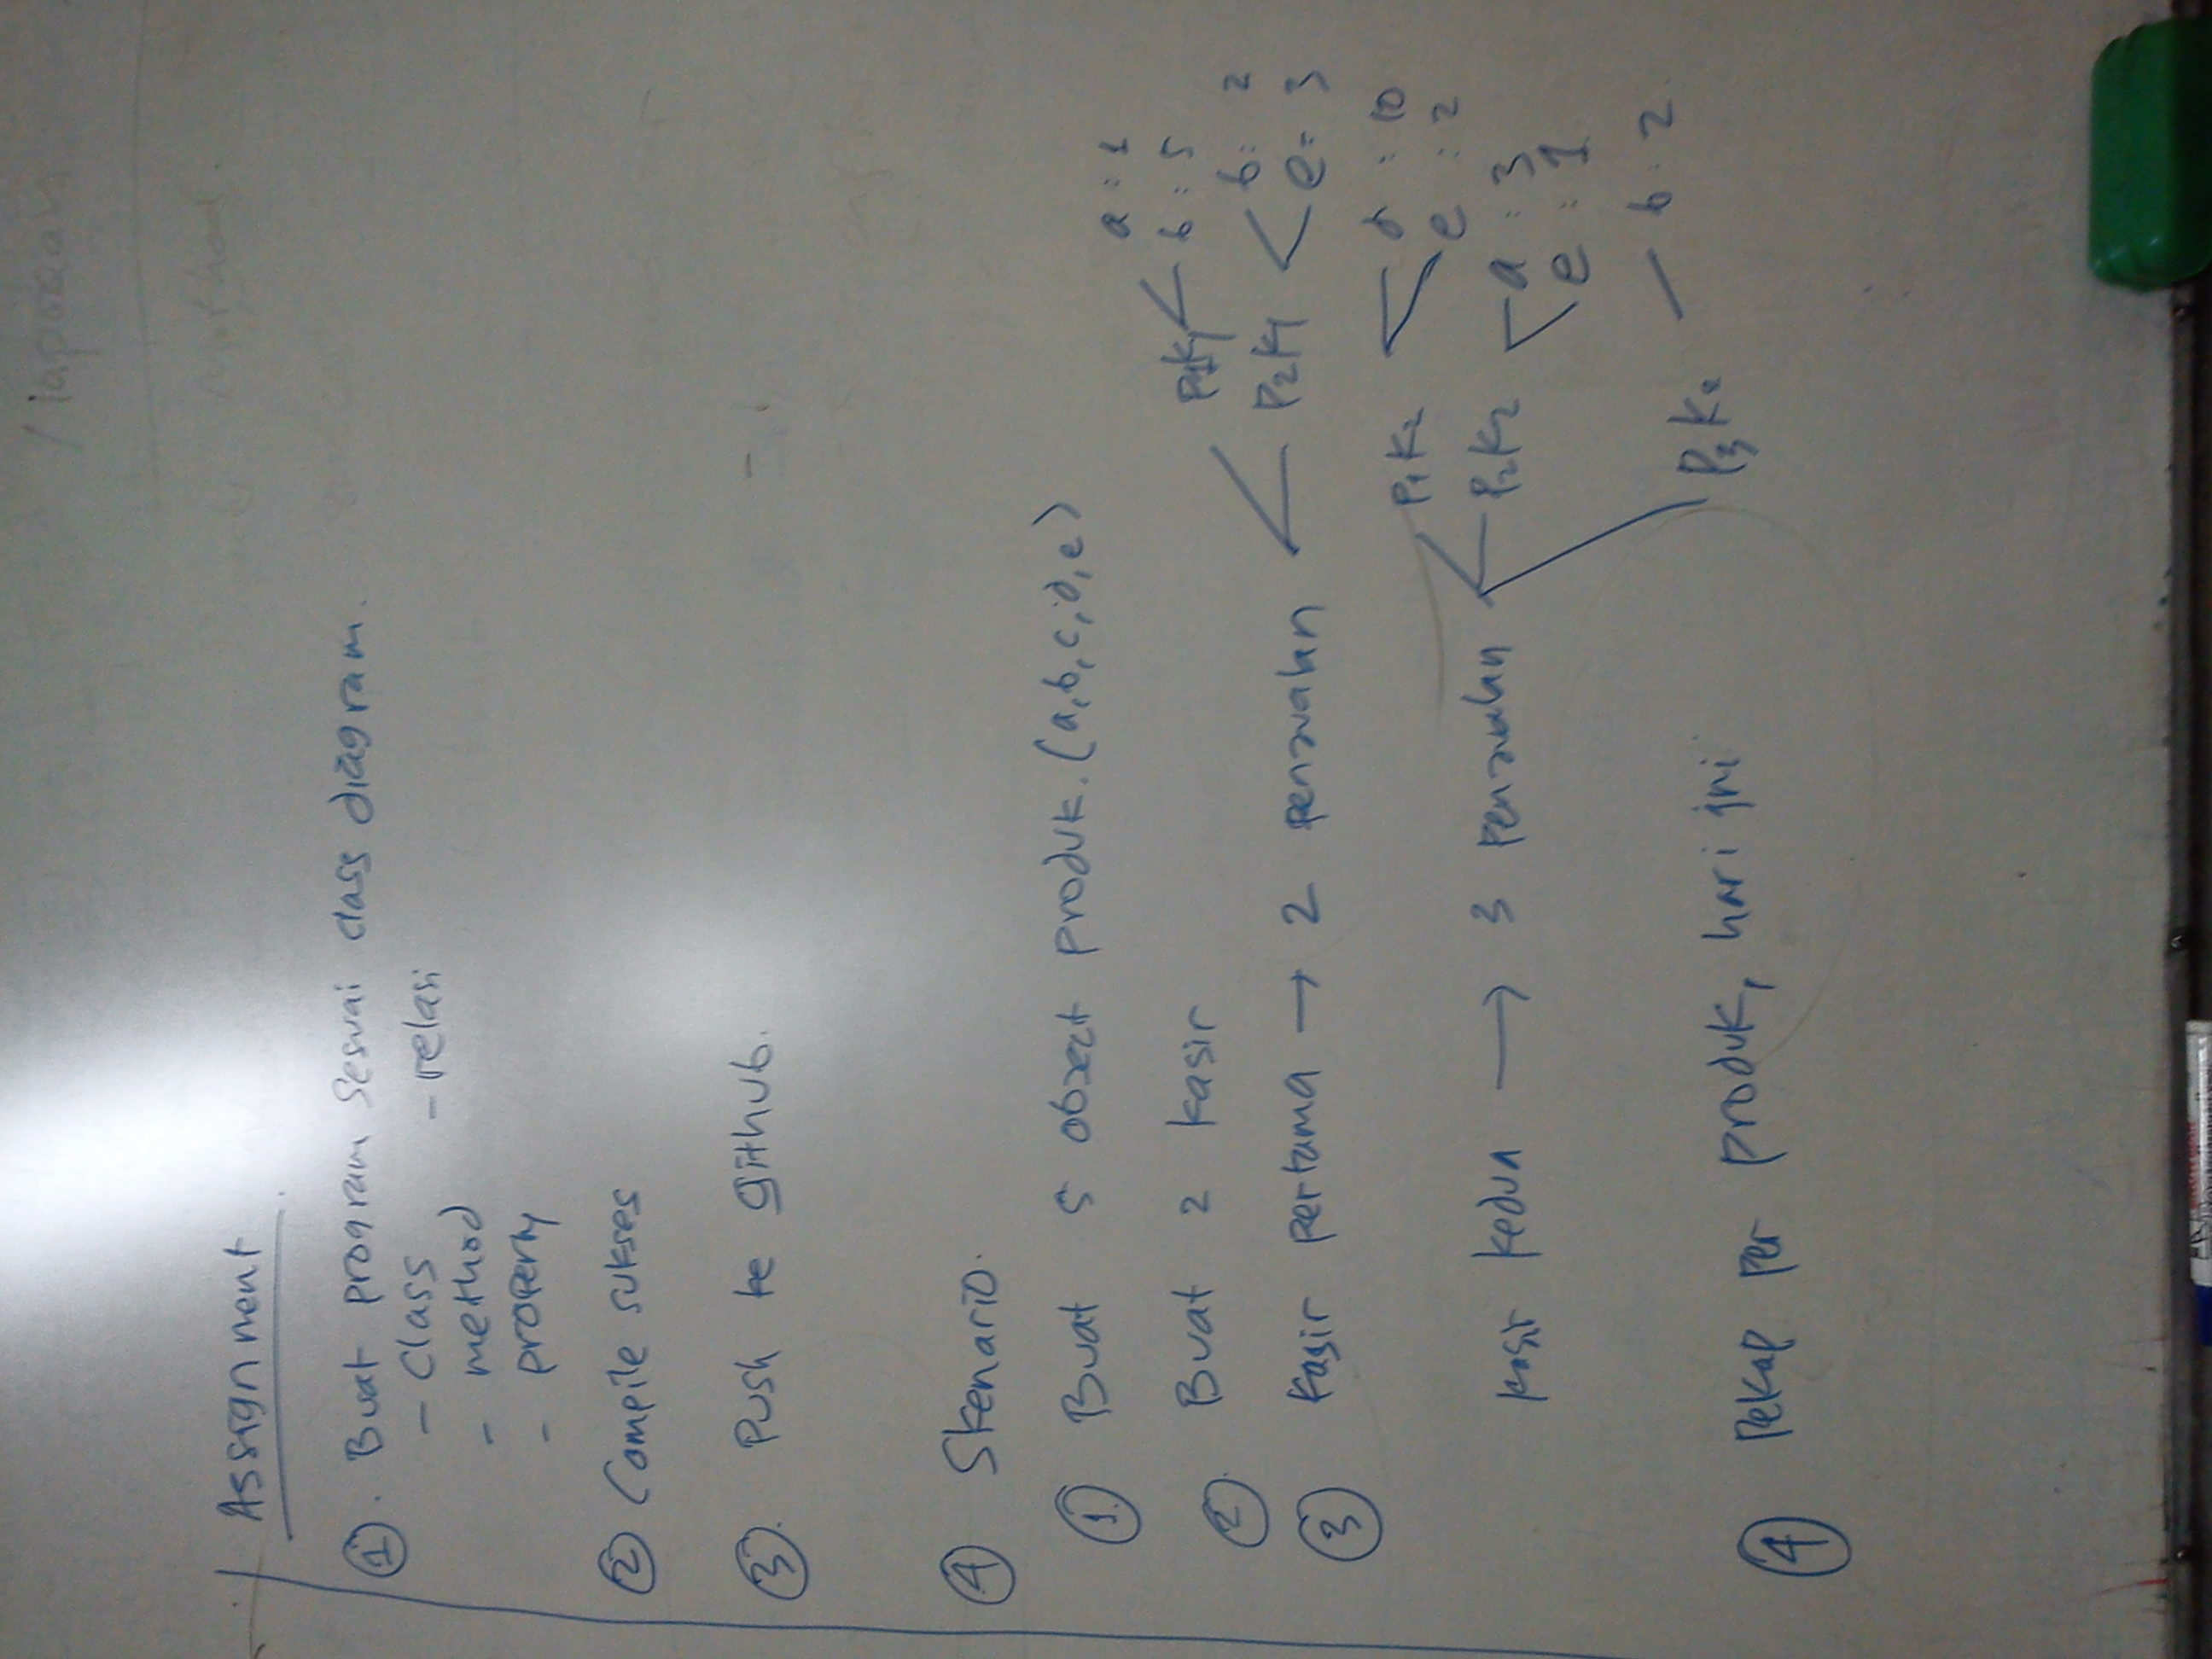 / laporan
Method.
Assignment
1. Buat program sesuai class diagram.
- Class - relasi
- method
- property
2 Compile sukses
3. Push ke github.
4 Skenario.
1. Buat 5 object produk. (a,b,c,d,e)
2. Buat 2 kasir
3 Kasir pertama → 2 penjualan
P1K1 a : 1
b : 5
P2K1 b : 2
e = 3
Kasir kedua → 3 penjualan
P1K2 d : 10
e : 2
P2K2 a : 3
e : 1
P3K2 b : 2.
4 Rekap per produk, hari ini